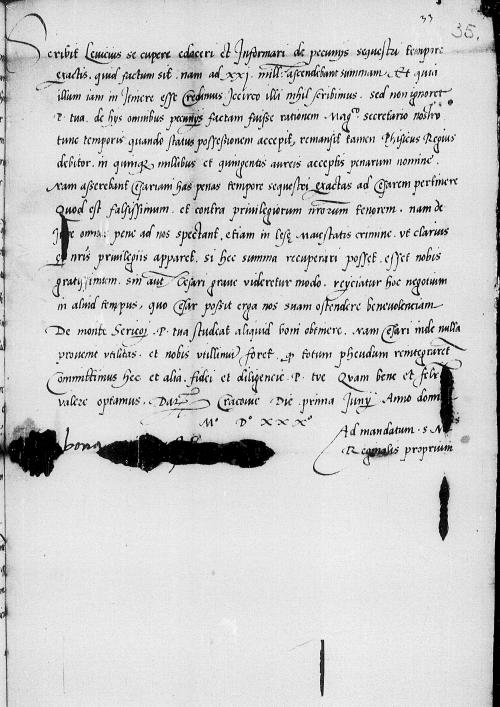 33
35.
Scribit Levicius se cupere edoceri et Informari de pecunijs sequestri tempore
exactis, quid factum sit. nam ad XXI. mill: ascendebant summam. Et quia
illum iam in Itinere esse Credimus Iccirco illi nihil scribimus. sed non ignoret
P. tua. de hys omnibus pecunijs factam fuisse rationem. Mag.co secretario nostro
tunc temporis quando status possessionem accepit, remansit tamen Phisicus Regius
debitor. in quinque millibus et quingentis aureis acceptis penarum nomine.
Nam asserebant Cesariani has penas tempore sequestri exactas ad Cesarem pertinere
Quod est falsissimum. et contra privilegiorum nrorum tenorem. nam de
omnia pene ad nos spectant, etiam in lese Maiestatis crimine. ut clarius
nris privilegiis apparet. si hec summa recuperari posset. esset nobis
gratissimum. sin aut Cesari grave videretur modo. reijciatur hoc negotium
in aliud tempus, quo Cesar possit erga nos suam ostendere benevolenciam
De monte Sericoj. P. tua studeat aliquid boni obtinere. Nam Cesari inde nulla
provenit utilitas. et nobis utilissimum foret. totum pheudum reintegraret
Committimus hec et alia. fidei et diligencie. P. tue Quam bene et
valere optamus. Cracovie Die prima Junij Anno domini
M.o D.o XXX.o
bona
Ad mandatum. s.
Reginalis proprium